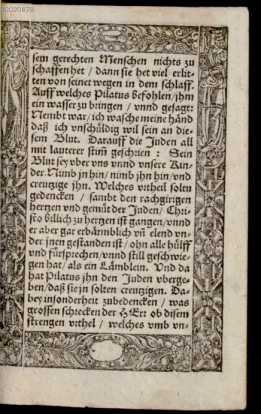 sem gerechten Menschen nichts zu
schaffen het / dann sie het viel erlit-
ten von seinet wegen in dem schlaff.
Auff welches Pilatus befohlen / jhm
ein wasser zu bringen / vnnd gesagt:
Nembt war / ich wasche meine händ
daß ich vnschüldig wil sein an die-
sem Blut. Darauff die Juden all
mit lauterer stim̃ geschriien : Sein
Blut sey vber vns vnnd vnsere Kin-
der. Nimb jn hin / nimb jhn hin / vnd
creuzige jhn. Welches vrtheil soltu
gedencken / sambt den rachgirigen
hertzen vnd gemüt der Juden / Chri-
sto billich zu hertzen ist gangen / vnnd
er aber gar erbärmblich vñ elend vn-
der jnen gestanden ist / ohn alle hülff
vnd fürsprechen / vnnd still geschwie-
gen hat / als ein Lämblein. Vnd da
hat Pilatus jhn den Juden vberge-
ben / daß sie jn solten creuzigen. Da-
bey insonderheit zubedencken / was
grossen schrecken der HErr ob disem
strengen vrthel / welches vmb vn-